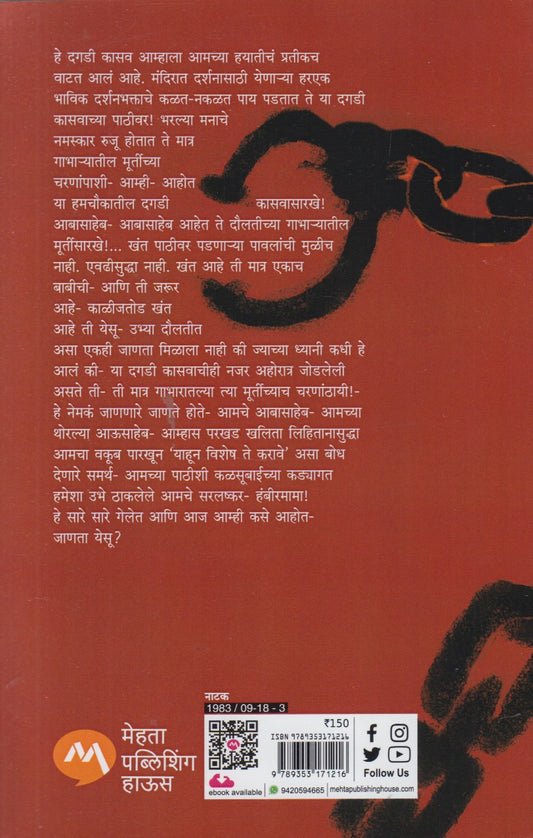 हे दगडी कासव आम्हाला आमच्या हयातीचं प्रतीकच
वाटत आलं आहे. मंदिरात दर्शनासाठी येणाऱ्या हरएक
भाविक दर्शनभक्ताचे कळत-नकळत पाय पडतात ते या दगडी
कासवाच्या पाठीवर! भरल्या मनाचे
नमस्कार रुजू होतात ते मात्र
गाभाऱ्यातील मूर्तीच्या
चरणांपाशी- आम्ही- आहोत
या हमचौकातील दगडी कासवासारखे!
आबासाहेब- आबासाहेब आहेत ते दौलतीच्या गाभाऱ्यातील
मूर्तीसारखे!... खंत पाठीवर पडणाऱ्या पावलांची मुळीच
नाही. एवढीसुद्धा नाही. खंत आहे ती मात्र एकाच
बाबीची- आणि ती जरूर
आहे- काळीजतोड खंत
आहे ती येसू- उभ्या दौलतीत
असा एकही जाणता मिळाला नाही की ज्याच्या ध्यानी कधी हे
आलं की- या दगडी कासवाचीही नजर अहोरात्र जोडलेली
असते ती- ती मात्र गाभारातल्या त्या मूर्तीच्याच चरणांठायी!-
हे नेमकं जाणणारे जाणते होते- आमचे आबासाहेब- आमच्या
थोरल्या आऊसाहेब- आम्हास परखड खलिता लिहितानासुद्धा
आमचा वकूब पारखून ‘याहून विशेष ते करावे’ असा बोध
देणारे समर्थ- आमच्या पाठीशी कळसूबाईच्या कड्यागत
हमेशा उभे ठाकलेले आमचे सरलष्कर- हंबीरमामा!
हे सारे सारे गेलेत आणि आज आम्ही कसे आहोत-
जाणता येसू?
नाटक
1983 / 09-18 - 3
₹150
ISBN 9789353171216
9 789353 171216
मेहता
पब्लिशिंग
हाऊस
Follow Us
ebook available
9420594665
mehtapublishinghouse.com